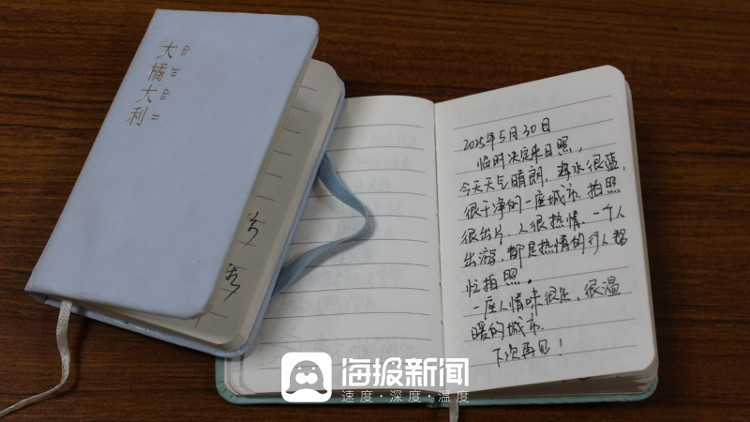 大橘大利
2025年5月30日
临时决定来日照，
今天天气晴朗，海水很蓝，
很干净的一座城市，拍照
很出片，人很热情，一个人
出游，都是热情的行人帮
忙拍照。
一座人情味很足，很温
暖的城市
下次再见！
海报新闻
速度·深度·温度